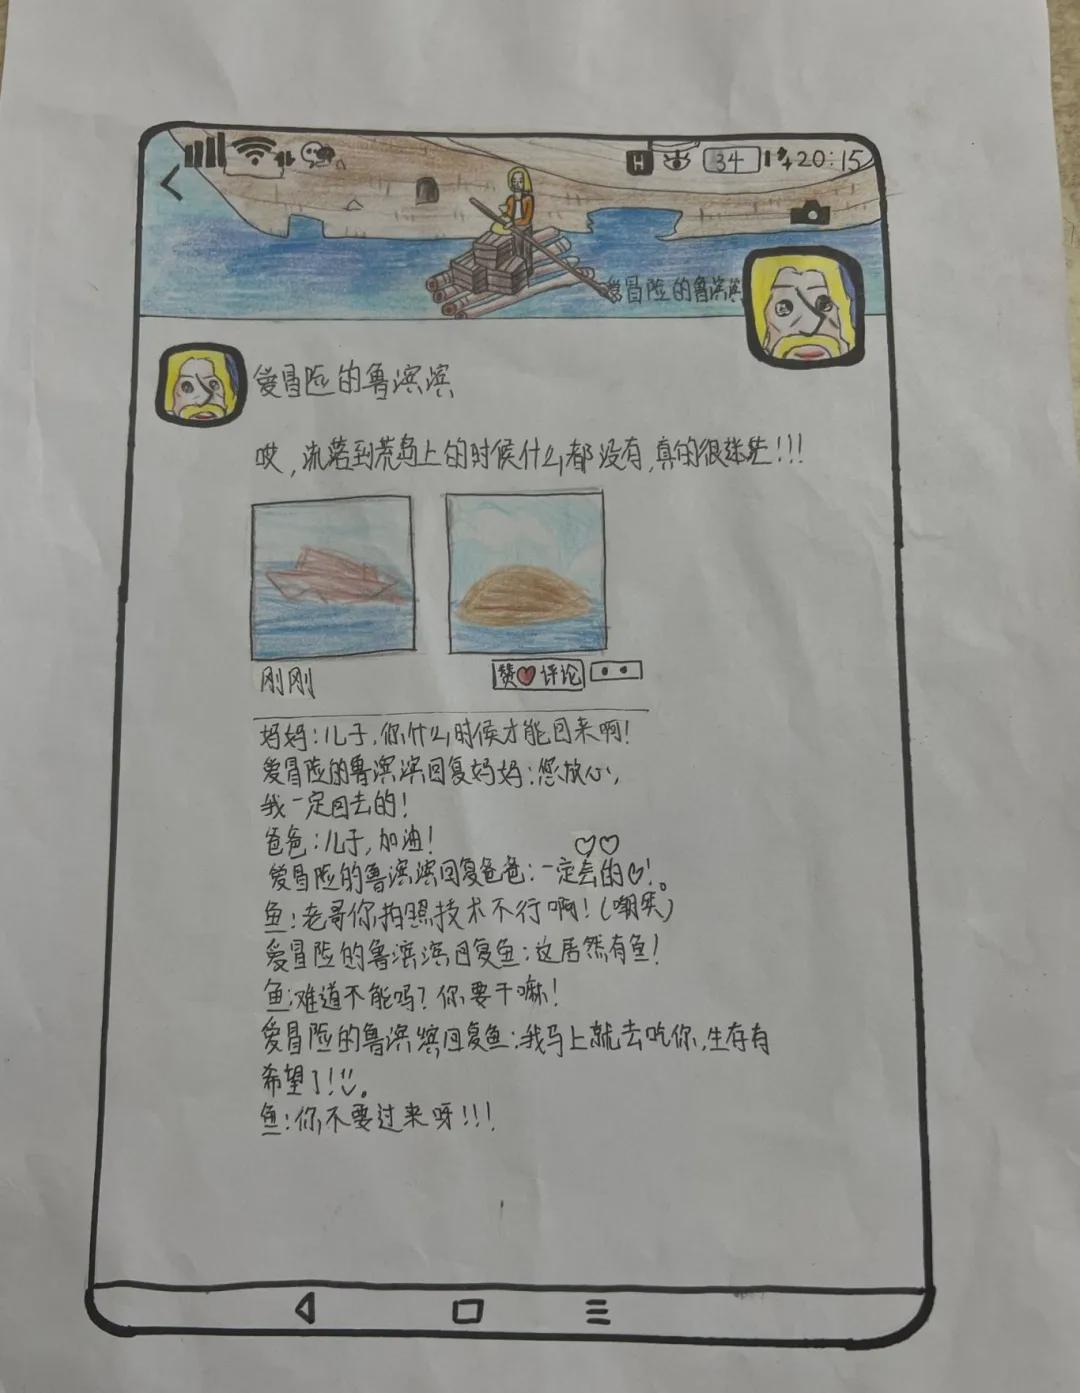 H 34 20:15
爱冒险的鲁滨滨
爱冒险的鲁滨滨
哎,流落到荒岛上的时候什么都没有,真的很迷茫!!!
刚刚
赞 评论
妈妈:儿子,你什么时候才能回来啊!
爱冒险的鲁滨滨回复妈妈:您放心,
我一定回去的!
爸爸:儿子,加油!
爱冒险的鲁滨滨回复爸爸:一定会的!。
鱼:老哥你拍照技术不行啊!(嘲笑)
爱冒险的鲁滨滨回复鱼:这居然有鱼!
鱼:难道不能吗?你要干嘛!
爱冒险的鲁滨滨回复鱼:我马上就去吃你,生存有
希望了!。
鱼:你不要过来呀!!!